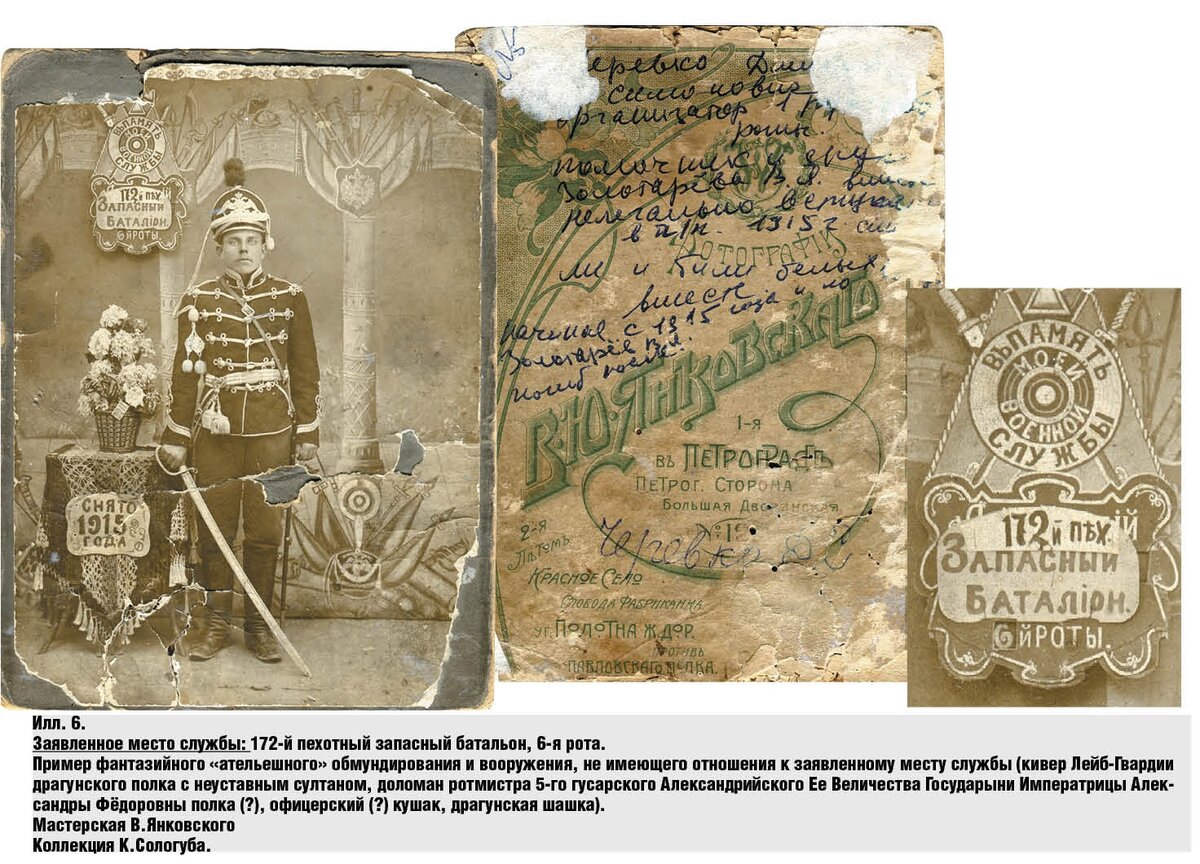 ВЪ ПАМЯТЬ
МОЕЙ
ВОЕННОЙ
СЛУЖБЫ
172й пѣх.
ЗАПАСНЫЙ
БАТАЛІОН.
6ЙРОТЫ.
СНЯТО
1915
ГОДА
организатор
помощник и
Золотарёва В.Я.
нелегально
в п/п. 1915 г
ли и били белых
вместе
начиная с 1915 года и
Золотарёв В.Я.
погиб после.
ФОТОГРАФІЯ
В.Ю.ЯНКОВСКАГО
1-я
въ ПЕТРОГРАДѢ
ПЕТРОГ. СТОРОНА
БОЛЬШАЯ ДВОРЯНСКАЯ
Черевко Д
2-я
ЛѢТОМЪ
КРАСНОЕ СЕЛО
СЛОБОДА ФАБРИКАННА
УГ. ПОЛОТНА Ж.ДОР.
ПРОТИВЪ
ПАВЛОВСКАГО ПОЛКА.
ВЪ ПАМЯТЬ
МОЕЙ
ВОЕННОЙ
СЛУЖБЫ
172й пѣх.
ЗАПАСНЫЙ
БАТАЛІОН.
6ЙРОТЫ.
Илл. 6.
Заявленное место службы: 172-й пехотный запасный батальон, 6-я рота.
Пример фантазийного «ательешного» обмундирования и вооружения, не имеющего отношения к заявленному месту службы (кивер Лейб-Гвардии
драгунского полка с неуставным султаном, доломан ротмистра 5-го гусарского Александрийского Ее Величества Государыни Императрицы Алек-
сандры Фёдоровны полка (?), офицерский (?) кушак, драгунская шашка).
Мастерская В.Янковского
Коллекция К.Сологуба.